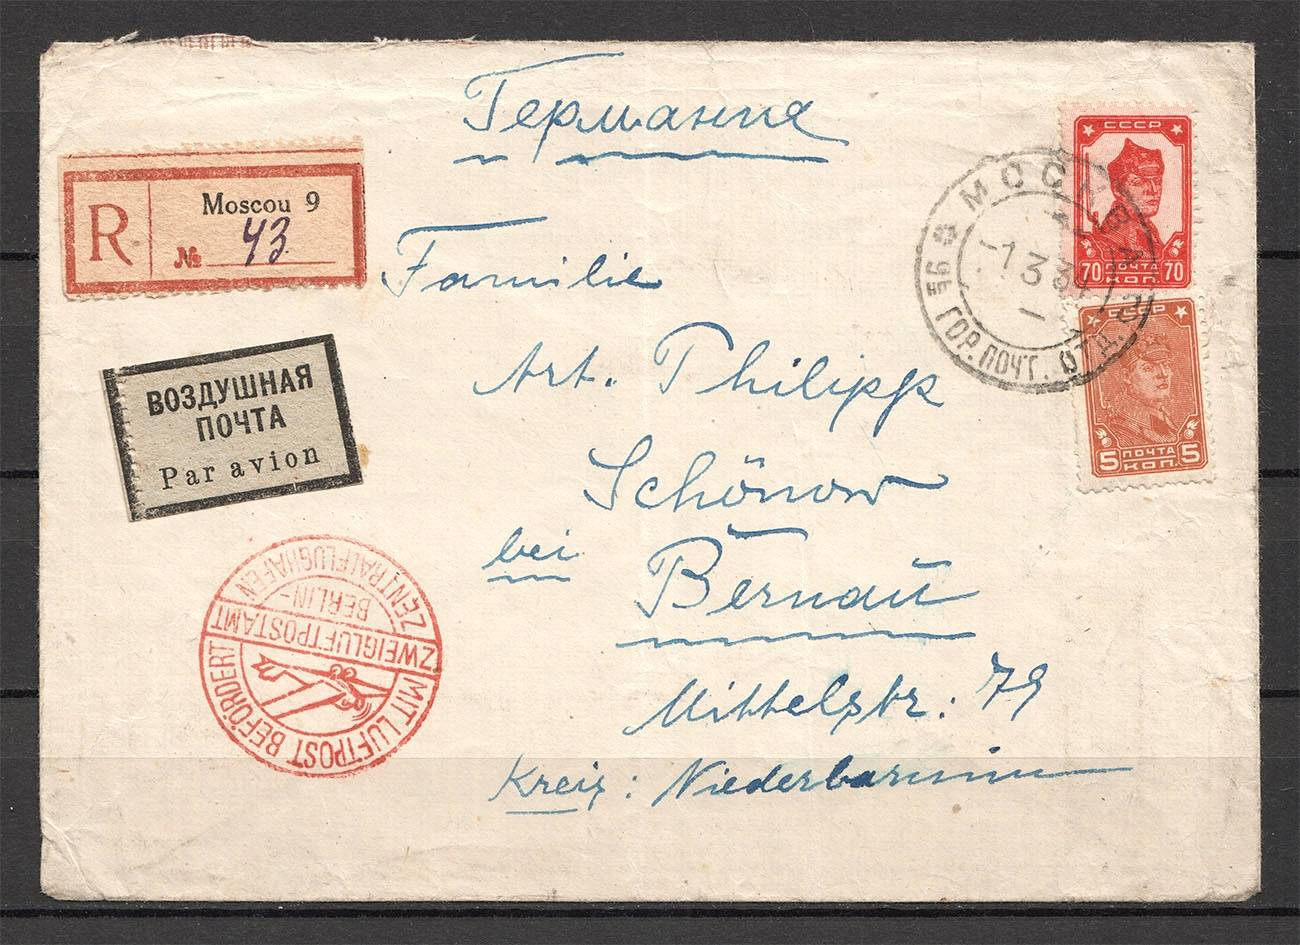 Германия
R
Moscou 9
№ 43
ВОЗДУШНАЯ
ПОЧТА
Par avion
СССР
70 ПОЧТА 70
КОП.
СССР
5 ПОЧТА 5
КОП.
МОСКВА
ГОР. ПОЧТ. ОТД.
Familie
Art. Philipp
Schönow
bei Bernau
Mittelstr: 79
Kreis: Niederbarnim
ZENTRALFLUGHAFEN
BERLIN-
ZWEIGLUFTPOSTAMT
MIT LUFTPOST BEFÖRDERT